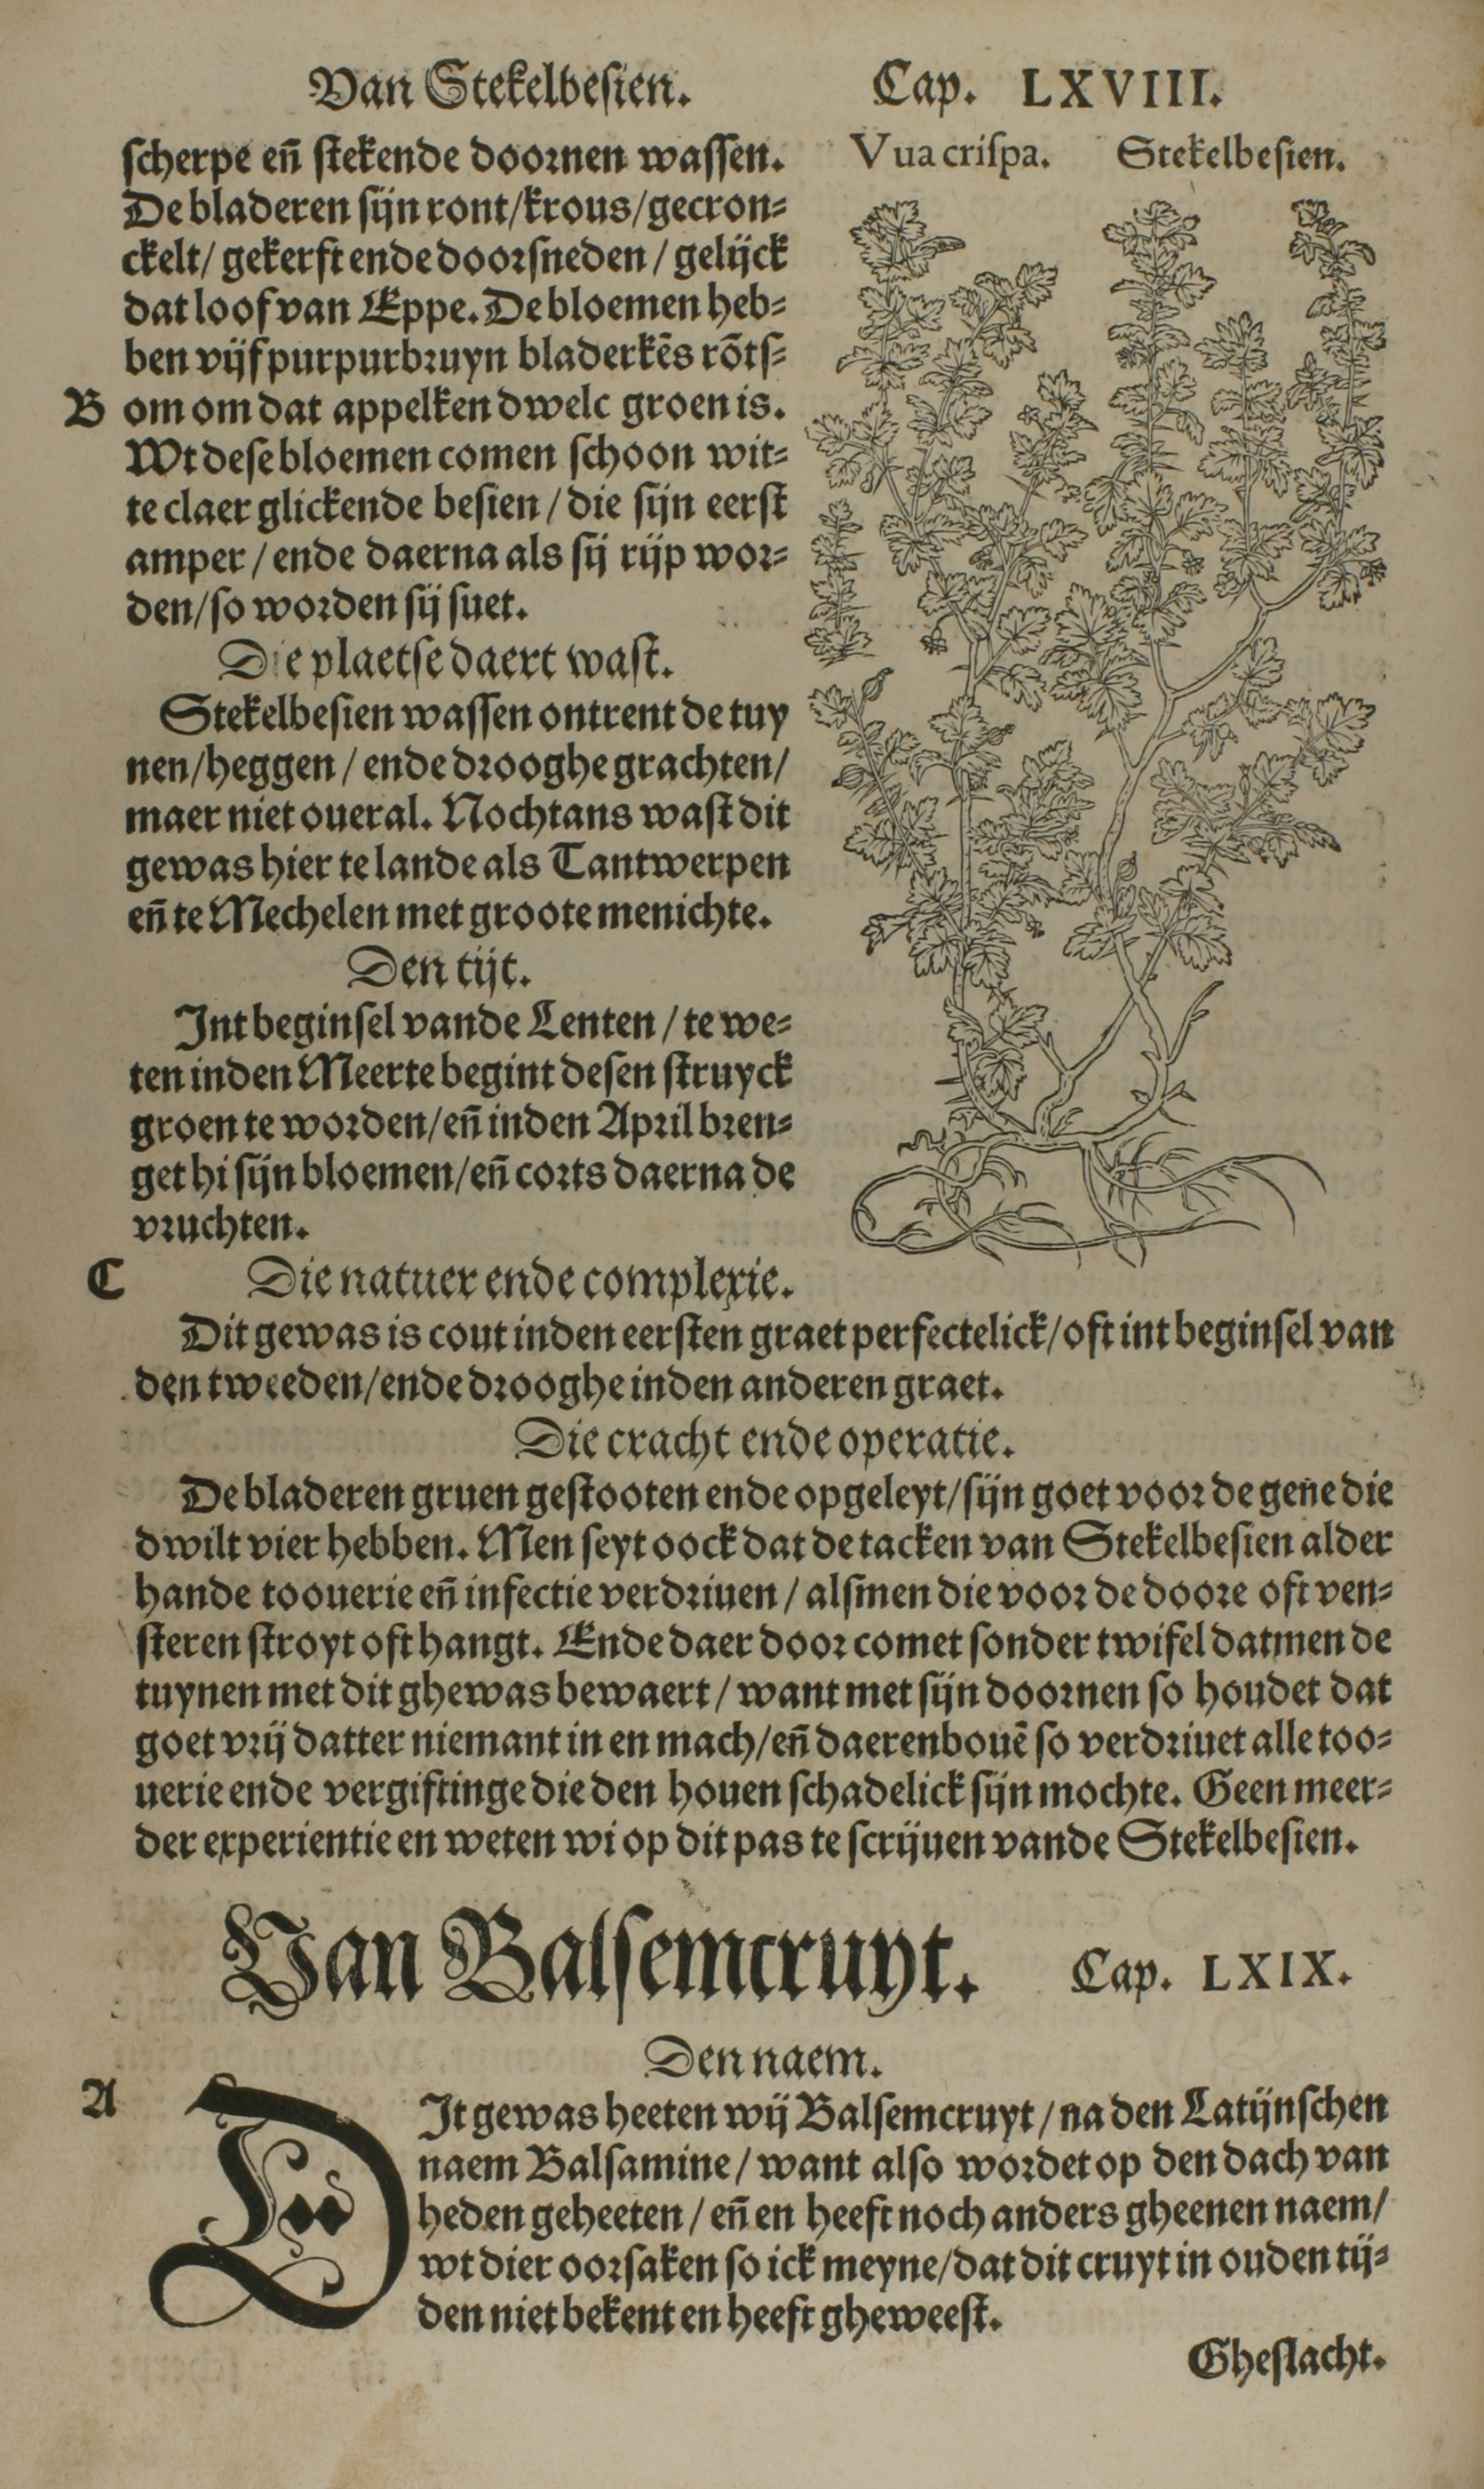 Van Stekelbesien. Cap. LXVIII.
scherpe eñ stekende doornen wassen.
De bladeren sijn ront/krous/gecron-
ckelt/ gekerft ende doorsneden / gelijck
dat loof van Eppe. De bloemen heb-
ben vijf purpurbruyn bladerkēs rōts-
B om om dat appelken dwelc groen is.
Wt dese bloemen comen schoon wit-
te claer glickende besien / die sijn eerst
amper / ende daerna als sij rijp wor-
den/so worden sij suet.
Die plaetse daert wast.
Stekelbesien wassen ontrent de tuy
nen/heggen / ende drooghe grachten/
maer niet oueral. Nochtans wast dit
gewas hier te lande als Tantwerpen
eñ te Mechelen met groote menichte.
Den tijt.
Int beginsel vande Lenten / te we-
ten inden Meerte begint desen struyck
groen te worden/eñ inden April bren-
get hi sijn bloemen/eñ corts daerna de
vruchten.
Vua crispa. Stekelbesien.
C Die natuer ende complexie.
Dit gewas is cout inden eersten graet perfectelick/oft int beginsel van
den tweeden/ende drooghe inden anderen graet.
Die cracht ende operatie.
De bladeren gruen gestooten ende opgeleyt/sijn goet voor de gene die
dwilt vier hebben. Men seyt oock dat de tacken van Stekelbesien alder
hande toouerie eñ infectie verdriuen / alsmen die voor de doore oft ven-
steren stroyt oft hangt. Ende daer door comet sonder twifel datmen de
tuynen met dit ghewas bewaert / want met sijn doornen so houdet dat
goet vrij datter niemant in en mach/eñ daerenbouē so verdriuet alle too-
uerie ende vergiftinge die den houen schadelick sijn mochte. Geen meer-
der experientie en weten wi op dit pas te scrijuen vande Stekelbesien.
Van Balsemcruyt. Cap. LXIX.
Den naem.
A DIt gewas heeten wij Balsemcruyt / na den Latijnschen
naem Balsamine / want also wordet op den dach van
heden geheeten / eñ en heeft noch anders gheenen naem/
wt dier oorsaken so ick meyne/dat dit cruyt in ouden tij-
den niet bekent en heeft gheweest.
Gheslacht.